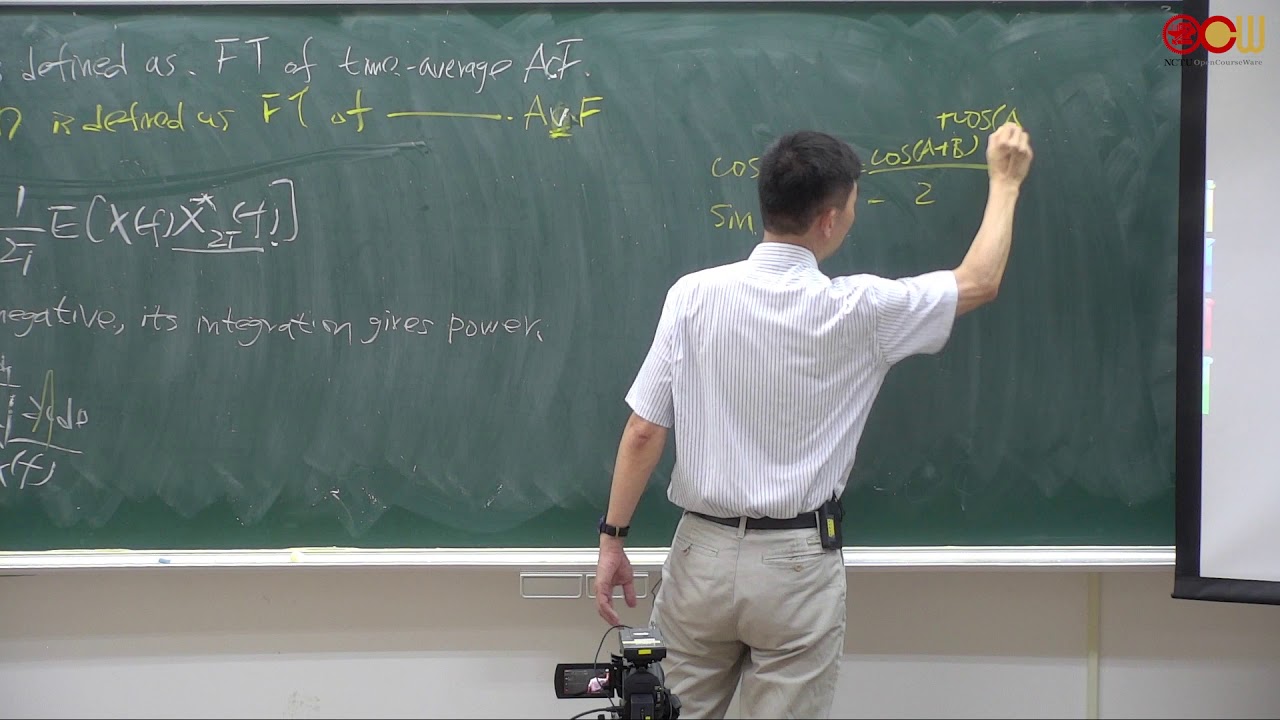 defined as. FT of time-average ACF.
is defined as FT of ———. AuF
1/2T E[X(f)X*2T(f)]
negative, its integration gives power.
+cos(A
cos cos(A+B)
sin - 2
(f)
OCW
NCTU OpenCourseWare